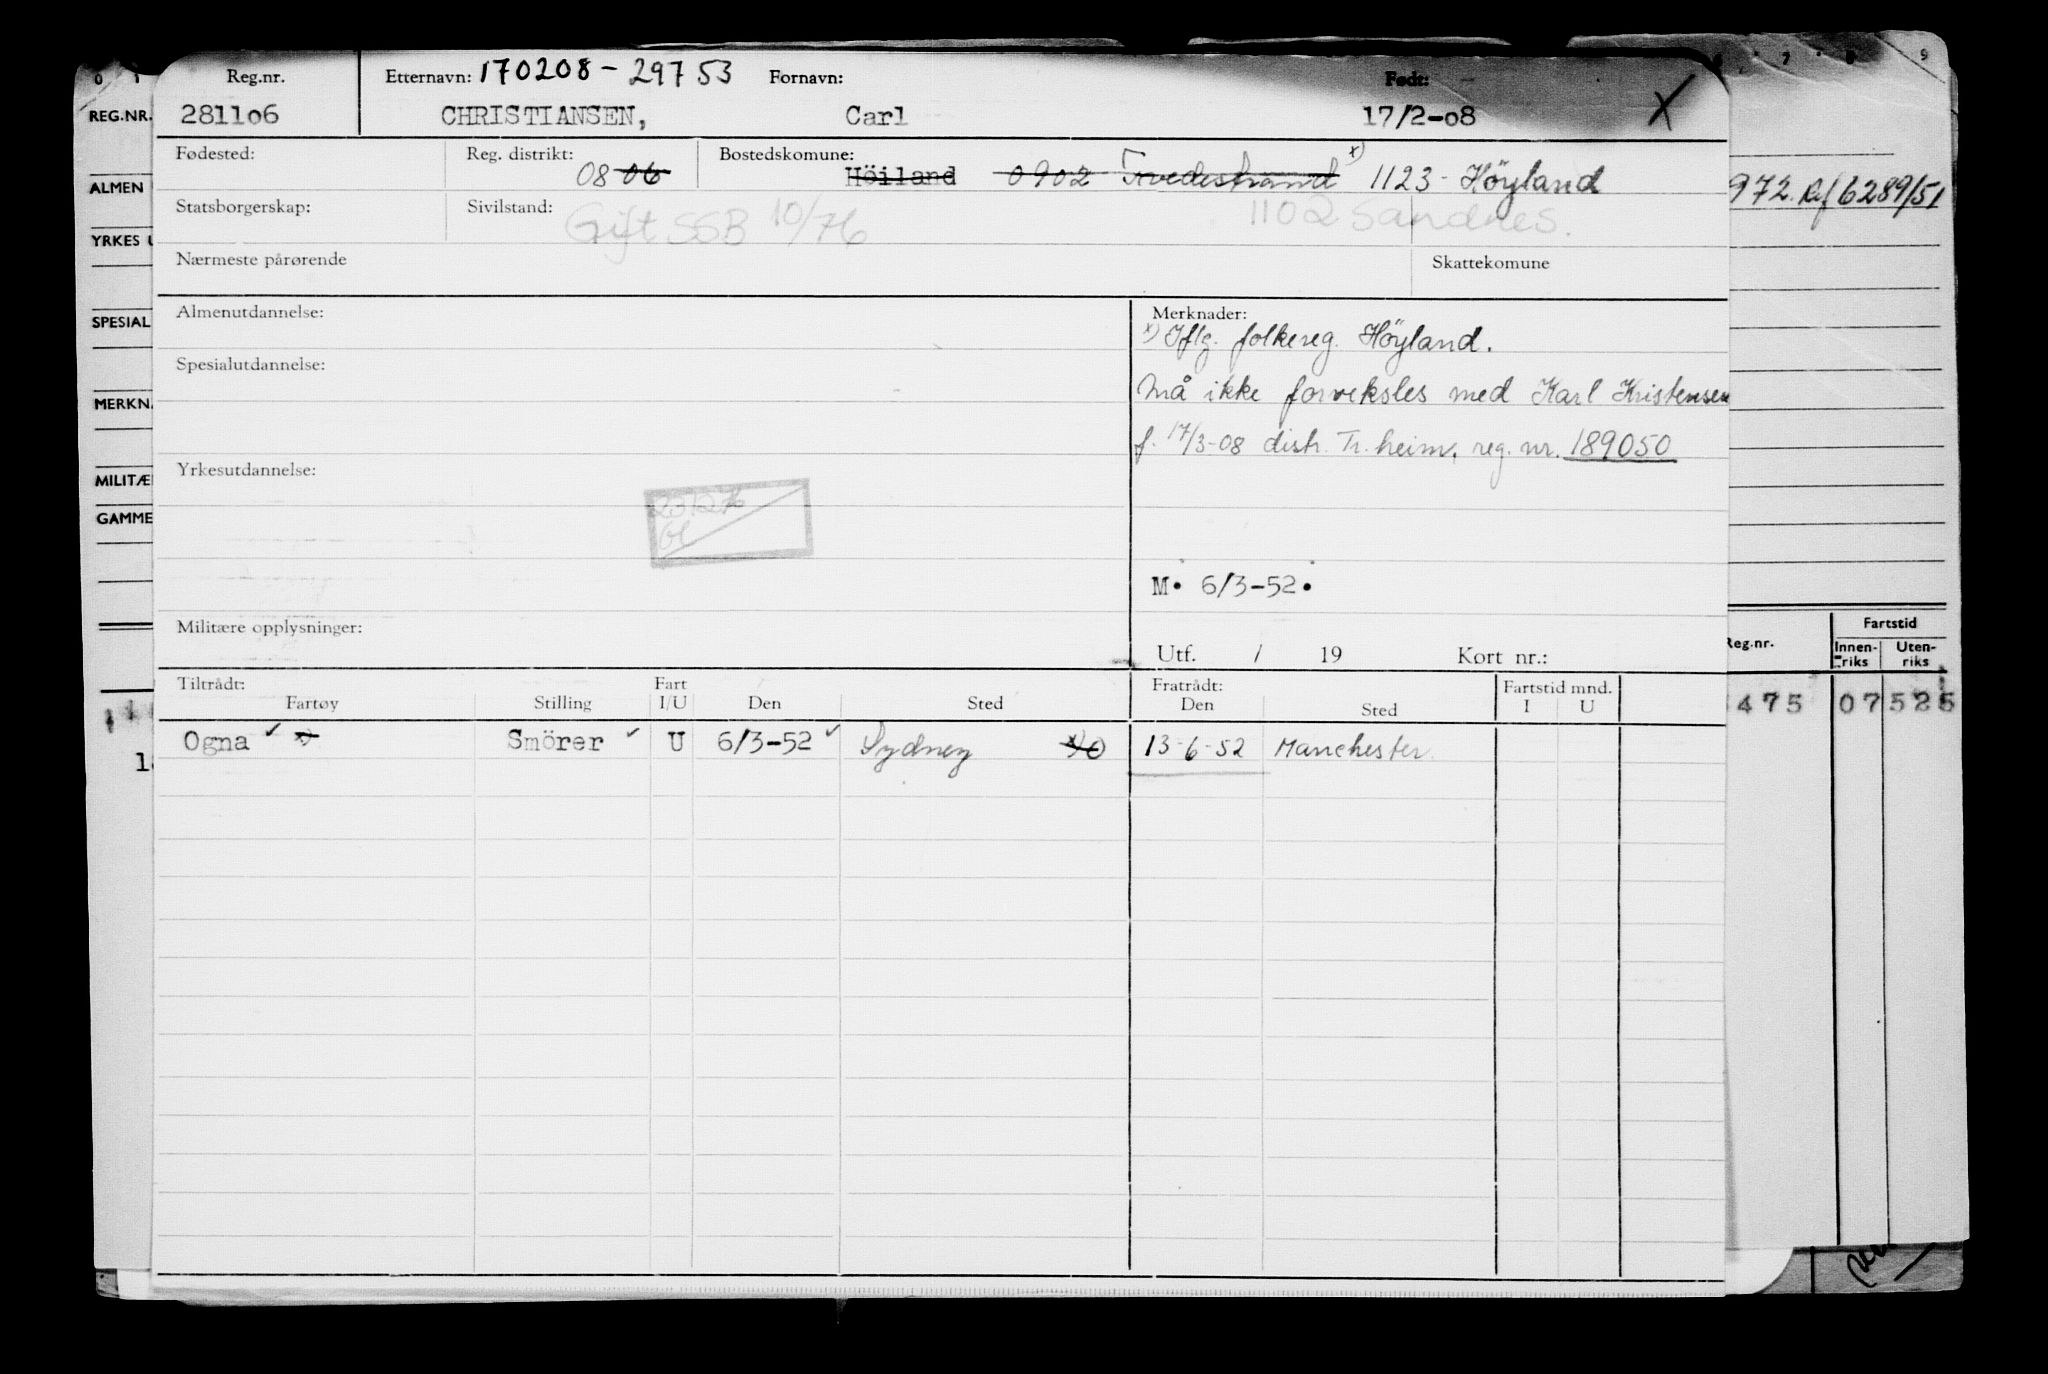 0 1 7 8 9
REG.NR.
ALMEN
YRKES U
SPESIAL
MERKNA
MILITÆ
GAMME
972. Ref 6289/51
Reg.nr. Fartstid
Innen-riks Uten-riks
475 07 525
Reg.nr. Etternavn: 170208-29753 Fornavn: Født:
281106 CHRISTIANSEN, Carl 17/2-08 X
Fødested: Reg. distrikt: 08 06 Bostedskomune: Höiland 0902 Tvedestrand x) 1123 - Höyland
Statsborgerskap: Sivilstand: Gift SSB 10/76 1102 Sandnes.
Nærmeste pårørende Skattekomune
Almenutdannelse: Merknader:
x) Iflg. folkereg. Höyland.
Spesialutdannelse:
Må ikke forveksles med Karl Kristensen
f. 17/3-08 distr. Tr.heim, reg. nr. 189050
Yrkesutdannelse:
M. 6/3-52.
Militære opplysninger:
Utf. / 19 Kort nr.:
Tiltrådt: Fart Fratrådt: Fartstid mnd.
Fartøy Stilling I/U Den Sted Den Sted I U
Ogna x) Smörer U 6/3-52 Sydney 13-6-52 Manchester.